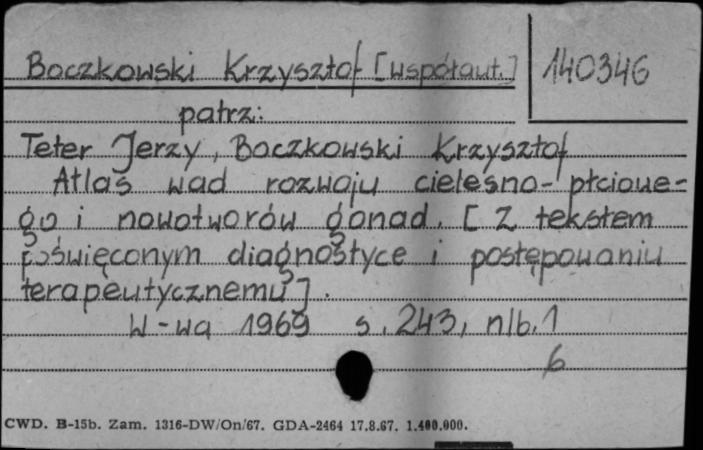 Boczkowski Krzysztof [współaut.] 140346
patrz:
Teter Jerzy, Boczkowski Krzysztof
Atlas wad rozwoju cielesno-płciowe-
go i nowotworów gonad. [Z tekstem
poświęconym diagnostyce i postępowaniu
terapeutycznemu].
W-wa 1969 s. 243, nlb. 1
6
CWD. B-15b. Zam. 1316-DW/On/67. GDA-2464 17.8.67. 1.400.000.